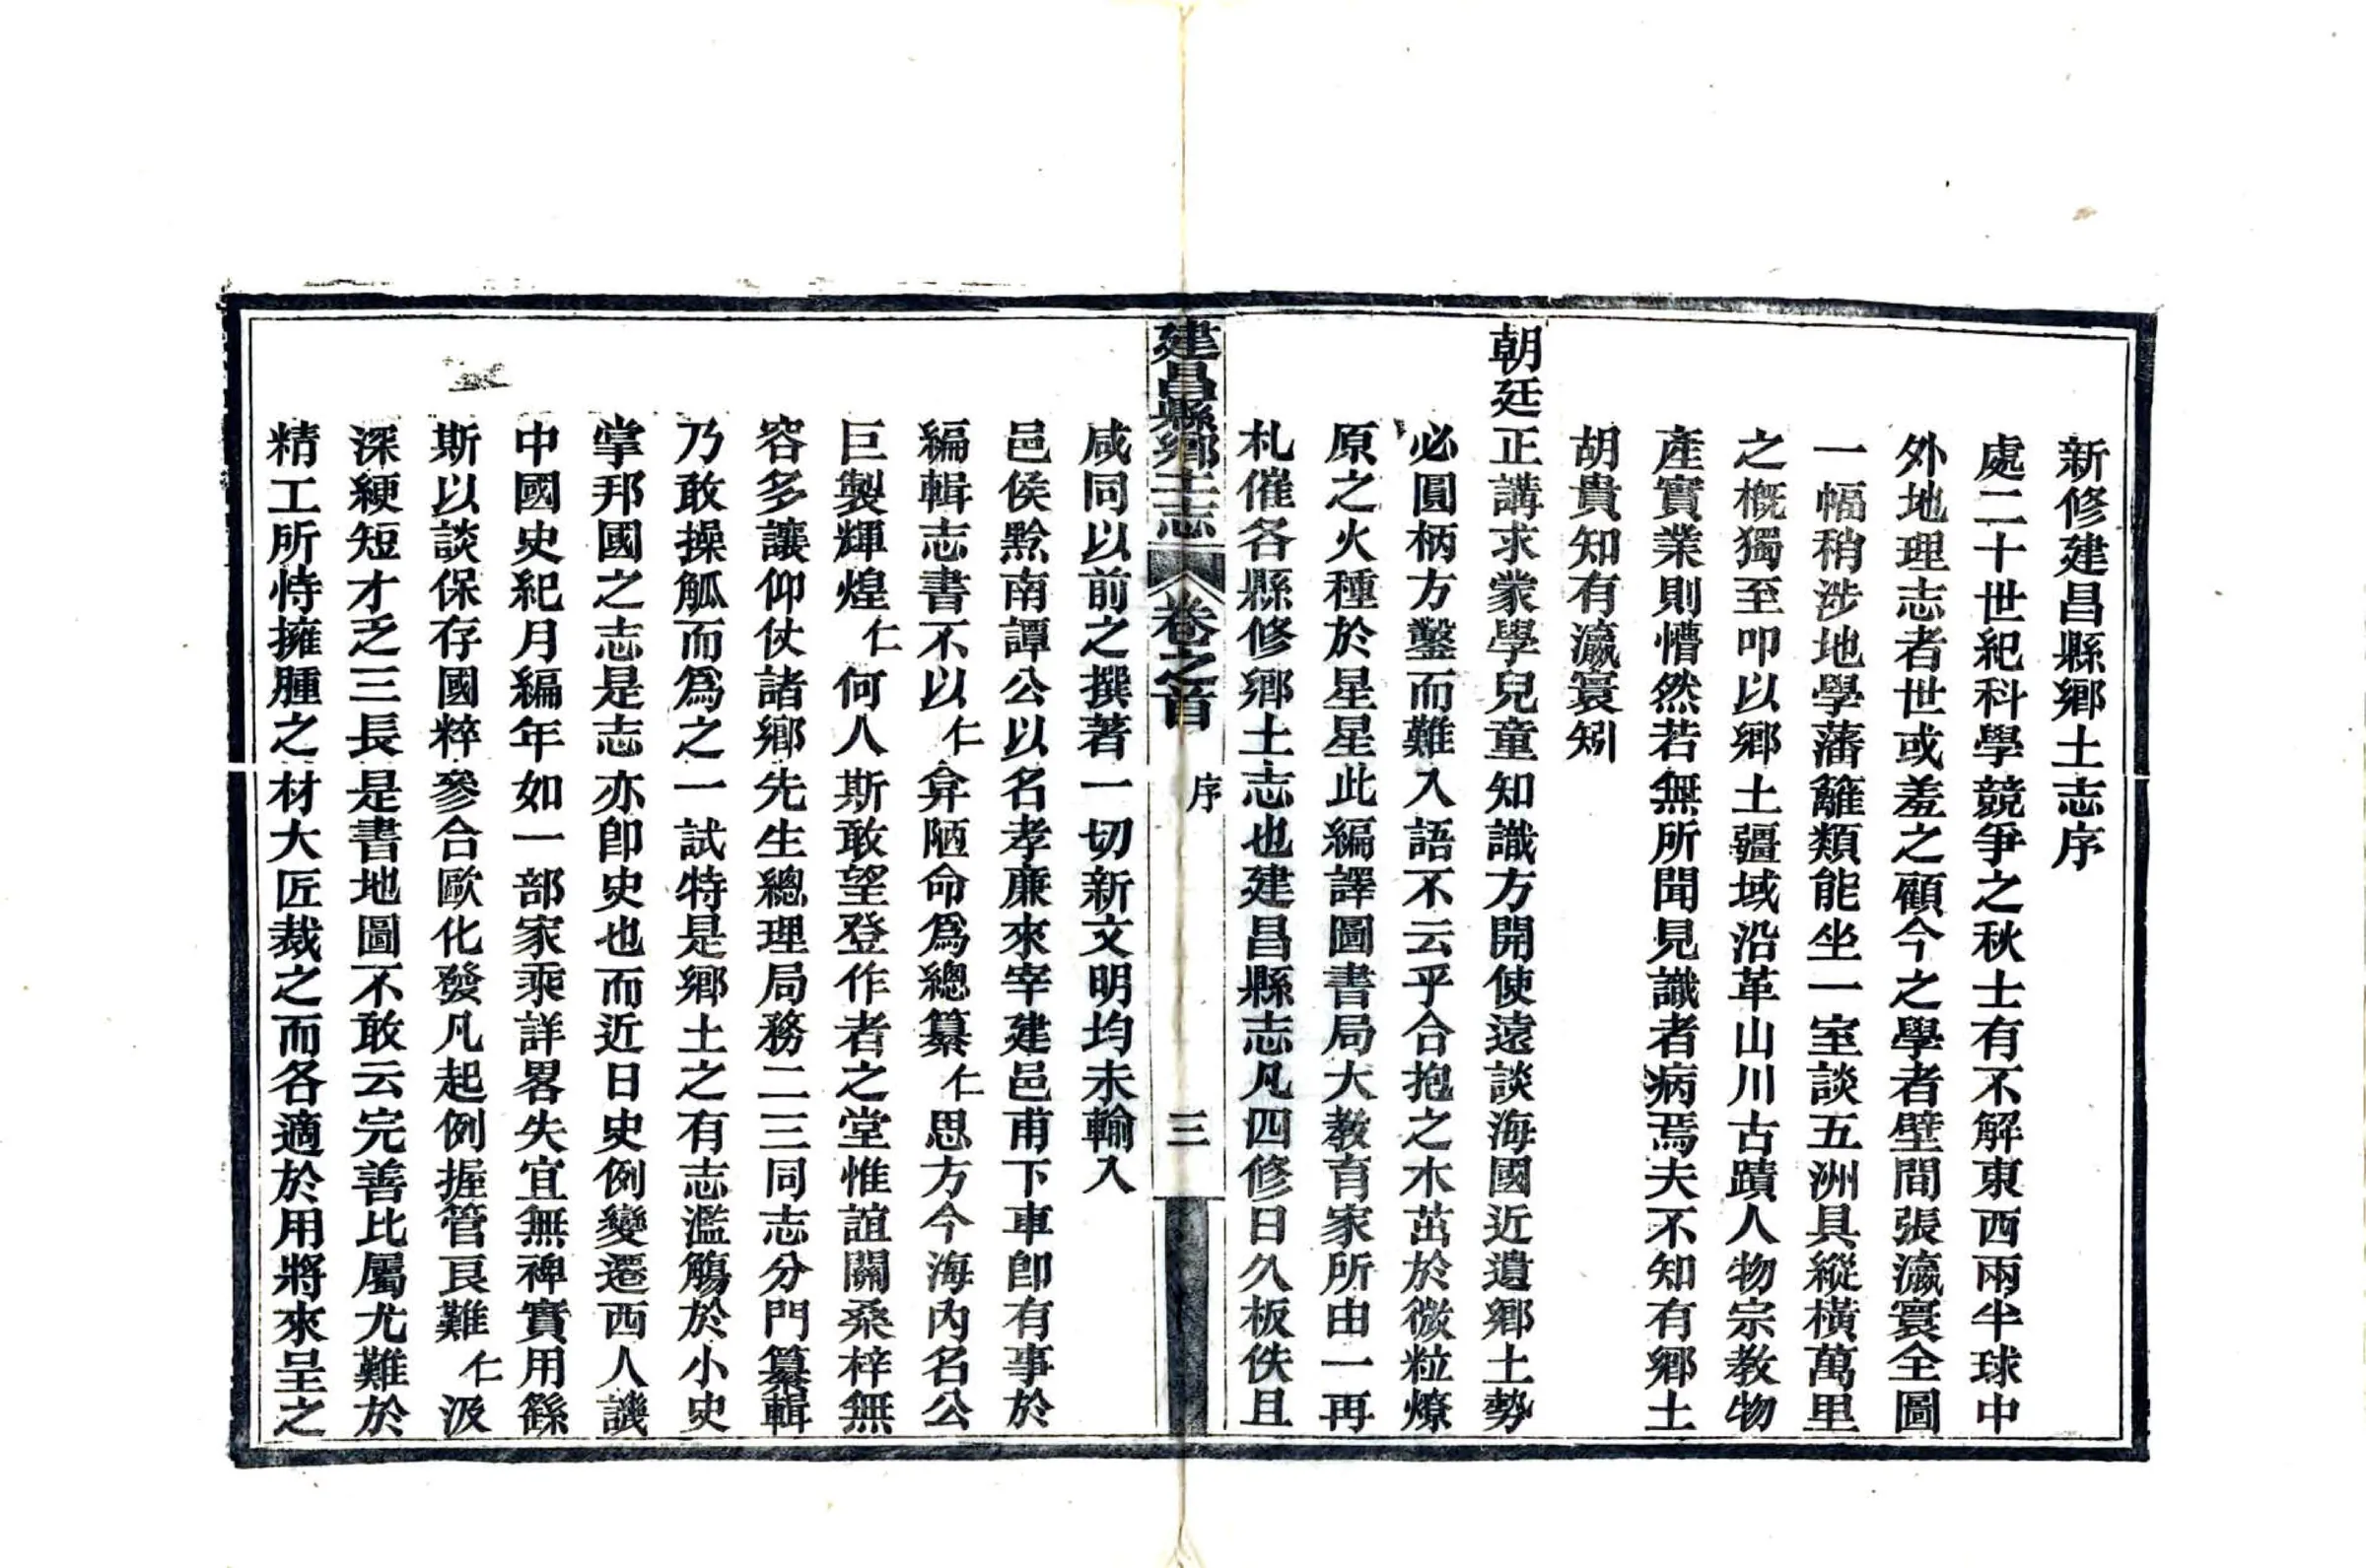 新修建昌縣鄉土志序
處二十世紀科學競爭之秋士有不解東西兩半球中
外地理志者世或羞之顧今之學者壁間張瀛寰全圖
一幅稍涉地學藩籬類能坐一室談五洲具縱橫萬里
之概獨至叩以鄉土疆域沿革山川古蹟人物宗教物
產實業則懵然若無所聞見識者病焉夫不知有鄉土
胡貴知有瀛寰矧
朝廷正講求蒙學兒童知識方開使遠談海國近遺鄉土勢
必圓枘方鑿而難入語不云乎合抱之木茁於微粒燎
原之火種於星星此編譯圖書局大教育家所由一再
札催各縣修鄉土志也建昌縣志凡四修日久板佚且
建昌縣鄉土志 卷之首 序 三
咸同以前之撰著一切新文明均未輸入
邑侯黔南譚公以名孝廉來宰建邑甫下車卽有事於
編輯志書不以仁弇陋命爲總纂仁思方今海內名公
巨製輝煌仁何人斯敢望登作者之堂惟誼關桑梓無
容多讓仰仗諸鄉先生總理局務二三同志分門纂輯
乃敢操觚而爲之一試特是鄉土之有志濫觴於小史
掌邦國之志是志亦卽史也而近日史例變遷西人譏
中國史紀月編年如一部家乘詳畧失宜無裨實用繇
斯以談保存國粹參合歐化發凡起例握管良難仁汲
深綆短才乏三長是書地圖不敢云完善比屬尤難於
精工所恃擁腫之材大匠裁之而各適於用將來呈之